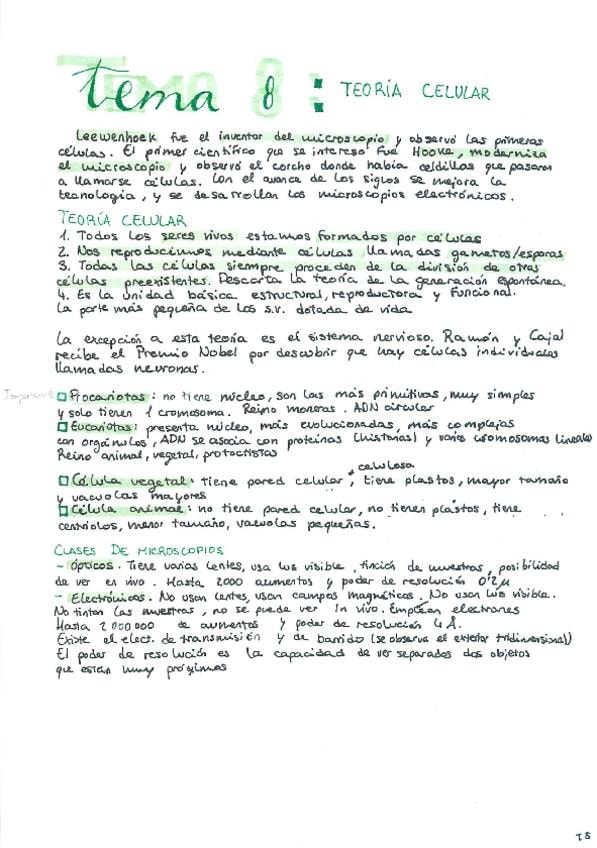 Tema 8: TEORÍA CELULAR
Leewenhoek fue el inventor del microscopio y observó las primeras
células. El primer científico que se intereso fue Hooke, moderniza
el microscopio y observó el corcho donde había celdillas que pasaron
a llamarse células. Con el avance de los siglos se mejora la
tecnología, y se desarrollan los microscopios electrónicos.
TEORÍA CELULAR
1. Todos los seres vivos estamos formados por células
2. Nos reproducimos mediante células llamadas gametos/esporas
3. Todas las células siempre proceden de la división de otras
células preexistentes. Descarta la teoría de la generación espontánea.
4. Es la unidad básica estructural, reproductora y funcional.
La parte más pequeña de los s.v. dotada de vida
La excepción a esta teoría es el sistema nervioso. Ramón y Cajal
recibe el Premio Nobel por descubrir que hay células individuales
llamadas neuronas.
Importante
Procariotas: no tiene núcleo, son las más primitivas, muy simples
y solo tienen 1 cromosoma. Reino moneras. ADN circular
Eucariotas: presenta núcleo, más evolucionadas, más complejas
con orgánulos, ADN se asocia con proteínas (histonas) y varios cromosomas lineales
Reino animal, vegetal, protoctistas
celulosa
Célula vegetal: tiene pared celular, tiene plastos, mayor tamaño
y vacuolas mayores
Célula animal: no tiene pared celular, no tienen plastos, tiene
centriolos, menor tamaño, vacuolas pequeñas.
CLASES DE MICROSCOPIOS
- Ópticos. Tiene varias lentes, usa luz visible, tinción de muestras, posibilidad
de ver en vivo. Hasta 2000 aumentos y poder de resolución 0'2µ.
- Electrónicos. No usan lentes, usan campos magnéticos. No usan luz visible.
No tintan las muestras, no se puede ver in vivo. Emplean electrones
Hasta 2000000 de aumentos y poder de resolución 4 Å.
Existe el elect. de transmisión y de barrido (se observa el exterior tridimensional)
El poder de resolución es la capacidad de ver separados dos objetos
que están muy próximos